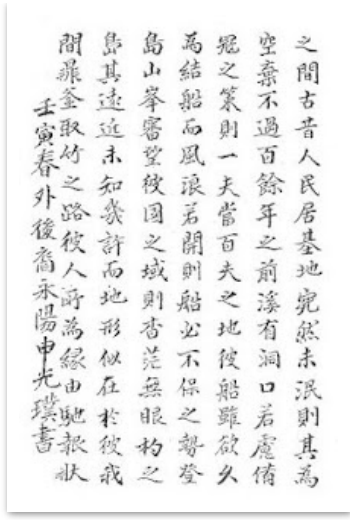 之間古昔人民居基地宛然未泯則其為
空棄不過百餘年之前溪有洞口若慮備
冦之策則一夫當百夫之地彼船雖欲久
為結船而風浪若開則船必不保之勢登
島山峯審望彼國之域則杳茫無眼杓之
島其遠近未知幾許而地形似在於彼我
間鼎釜取竹之路彼人所為緣由馳報狀
壬寅春外後裔永陽申光璞書